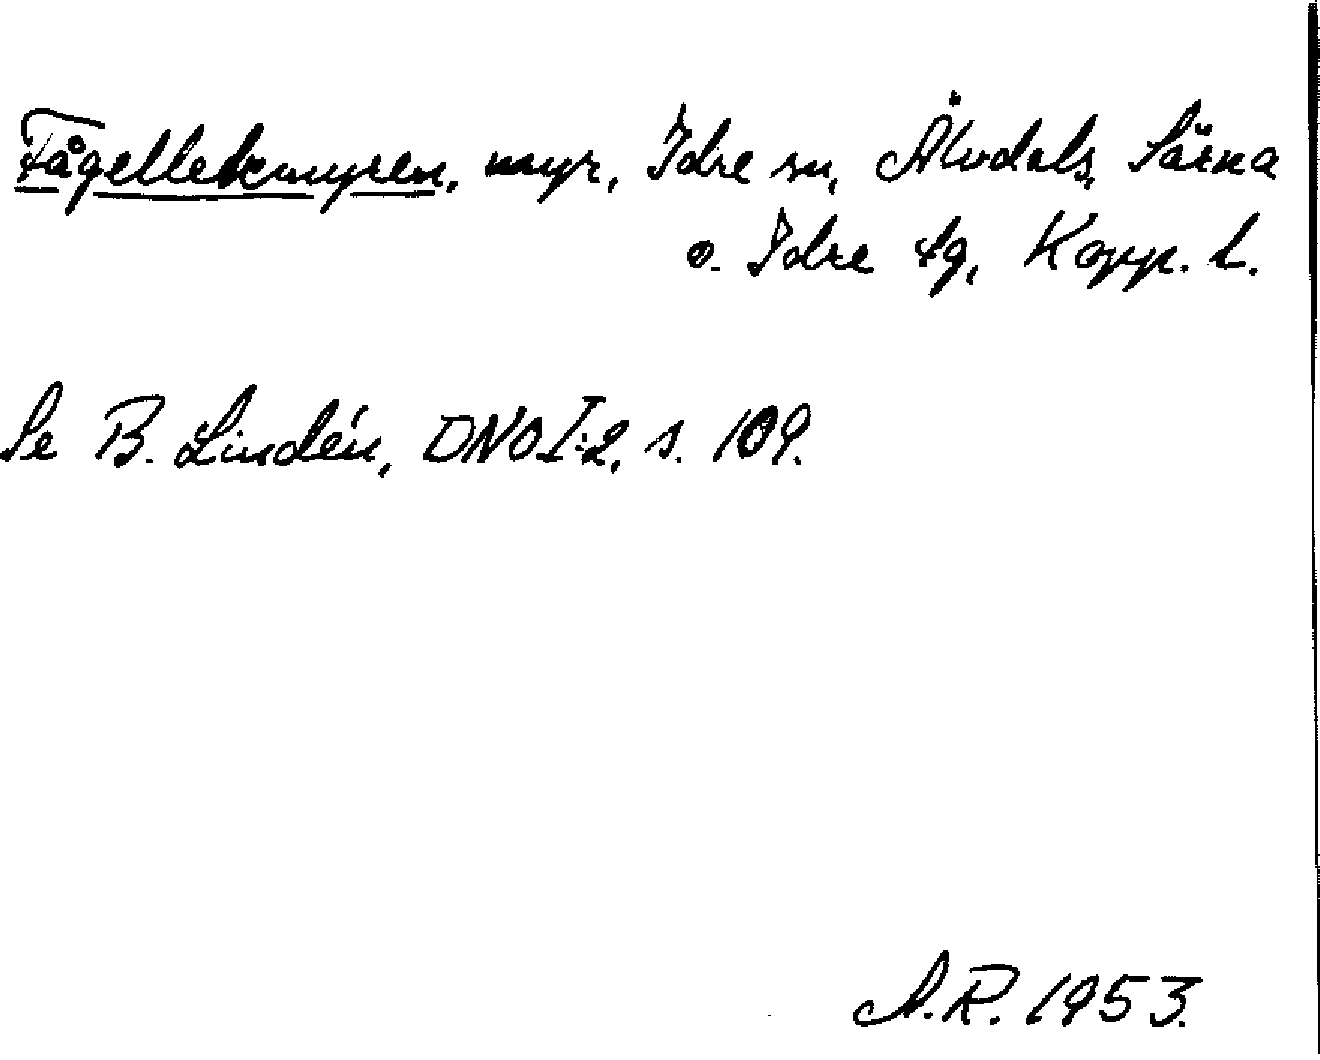 Fågellekmyren, myr, Idre sn, Älvdals, Särna
o. Idre tg, Kopp. l.
Se B. Lindén, DNO I:2, s. 109.
A.R. 1953.